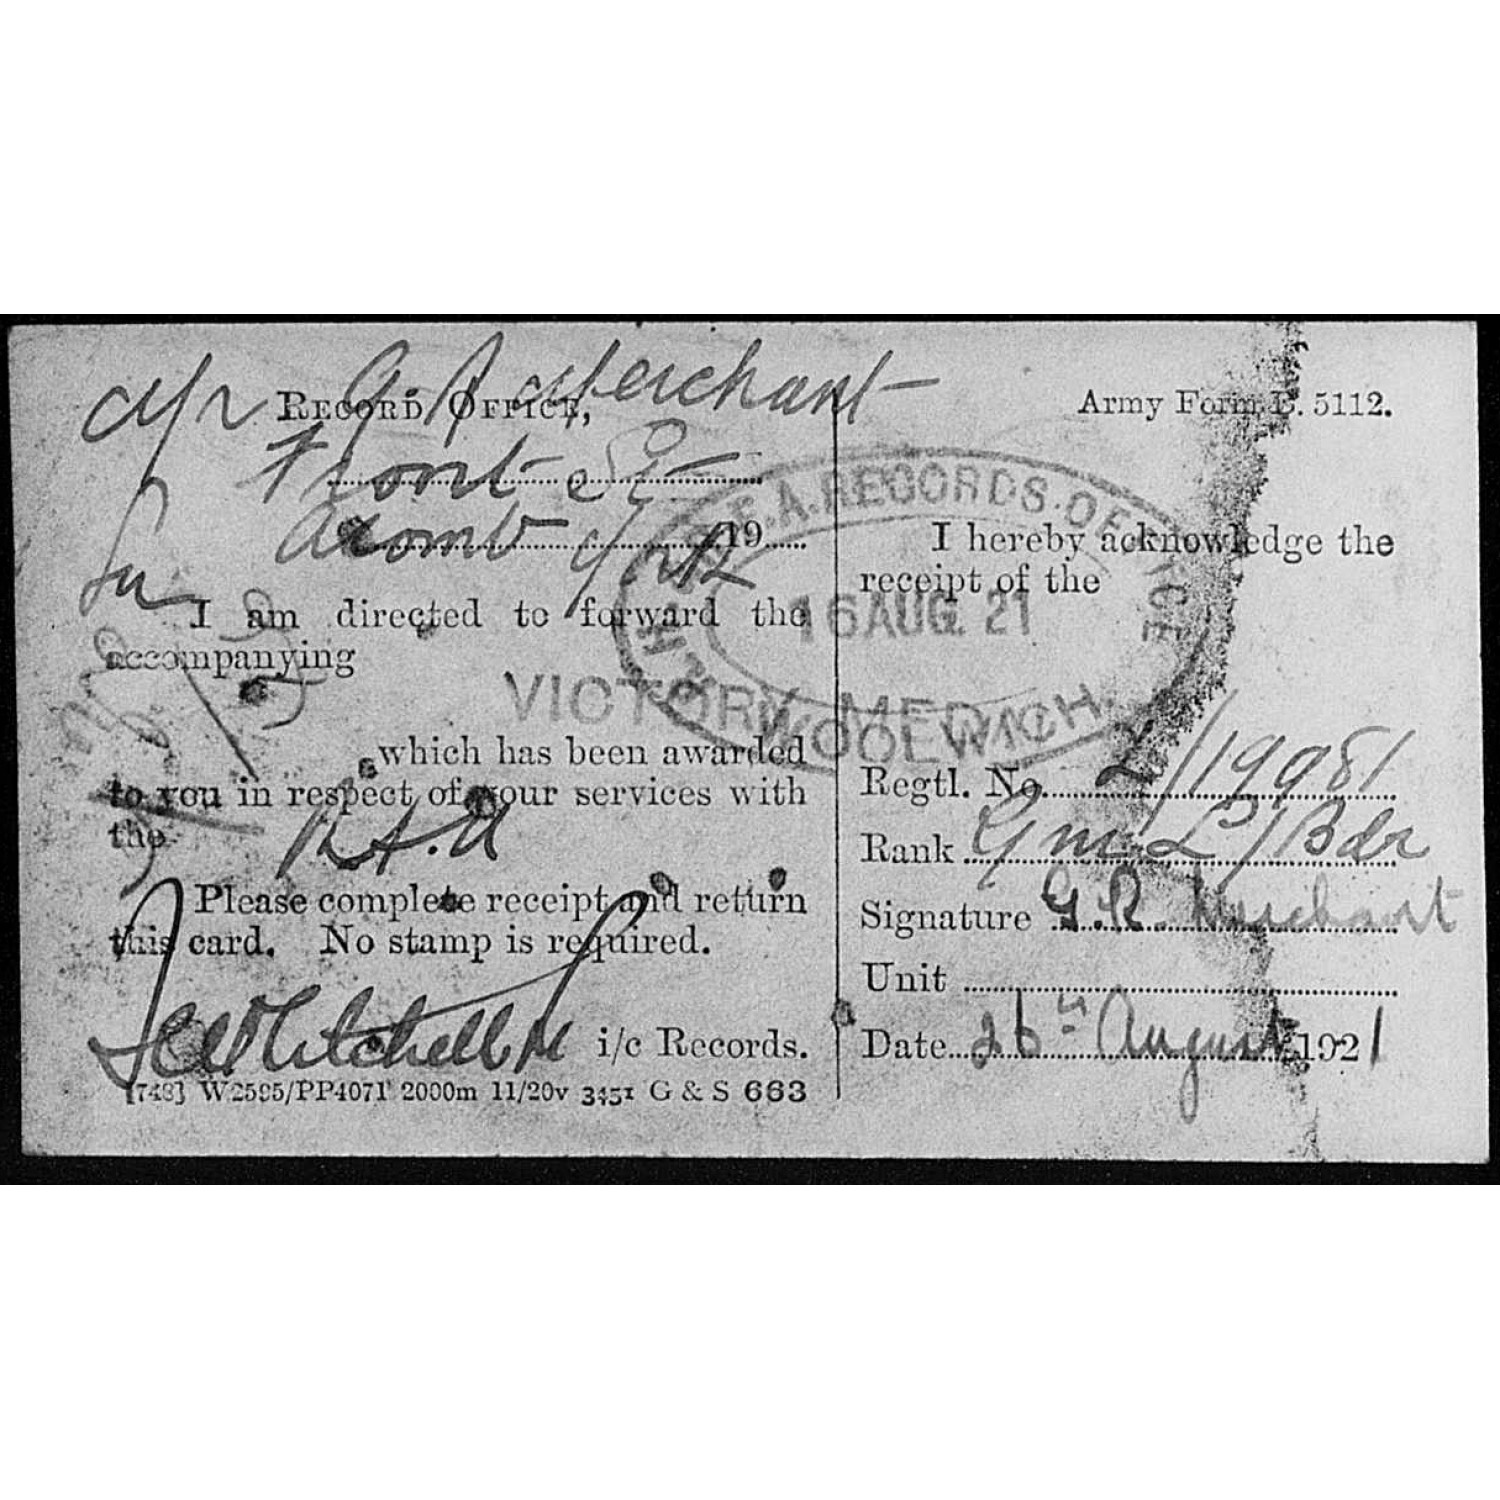 Mr G. R. Merchant
RECORD OFFICE,
Front St
Acomb York
19
Sir
I am directed to forward the
accompanying
VICTORY MED
which has been awarded
to you in respect of your services with
the R.H.A
Please complete receipt and return
this card. No stamp is required.
i/c Records.
[748] W2595/PP4071 2000m 11/20v 3451 G & S 663
Army Form B. 5112.
R.H. & R.F.A. RECORDS OFFICE
16 AUG. 21
WOOLWICH.
I hereby acknowledge the
receipt of the
Regtl. No. L/19981
Rank Gnr L/Bdr
Signature G. R. Merchant
Unit
Date 26th August 1921